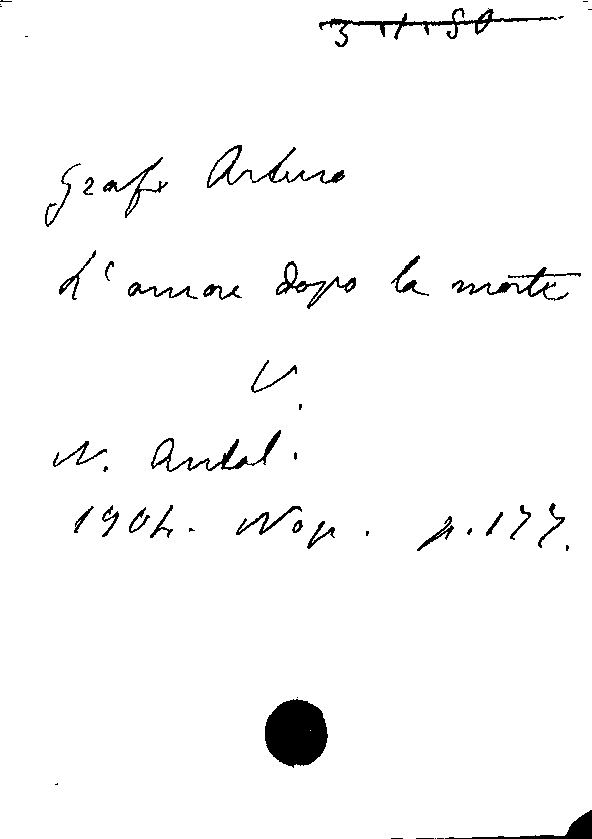 Graf Arturo
L'amore dopo la morte
V.
N. Antol.
1904. Nov. p. 177.